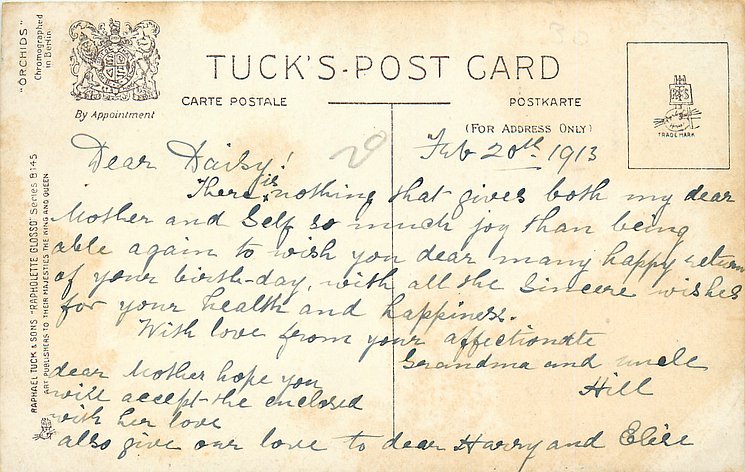 TUCK'S·POST CARD
CARTE POSTALE
POSTKARTE
(FOR ADDRESS ONLY)
By Appointment
"ORCHIDS"
Chromographed
in Berlin
RAPHAEL TUCK & SONS "RAPHOLETTE GLOSSO" Series 8145
ART PUBLISHERS TO THEIR MAJESTIES THE KING AND QUEEN
TRADE MARK
20
Feb 20th 1913
Dear Daisy!
There is nothing that gives both my dear
Mother and Self so much joy than being
able again to wish you dear many happy return
of your birth-day, with all the Sincere wishes
for your health and happiness.
With love from your affectionate
Grandma and uncle
Hill
dear Mother hope you
will accept the enclosed
with her love
also give our love to dear Harry and Elise